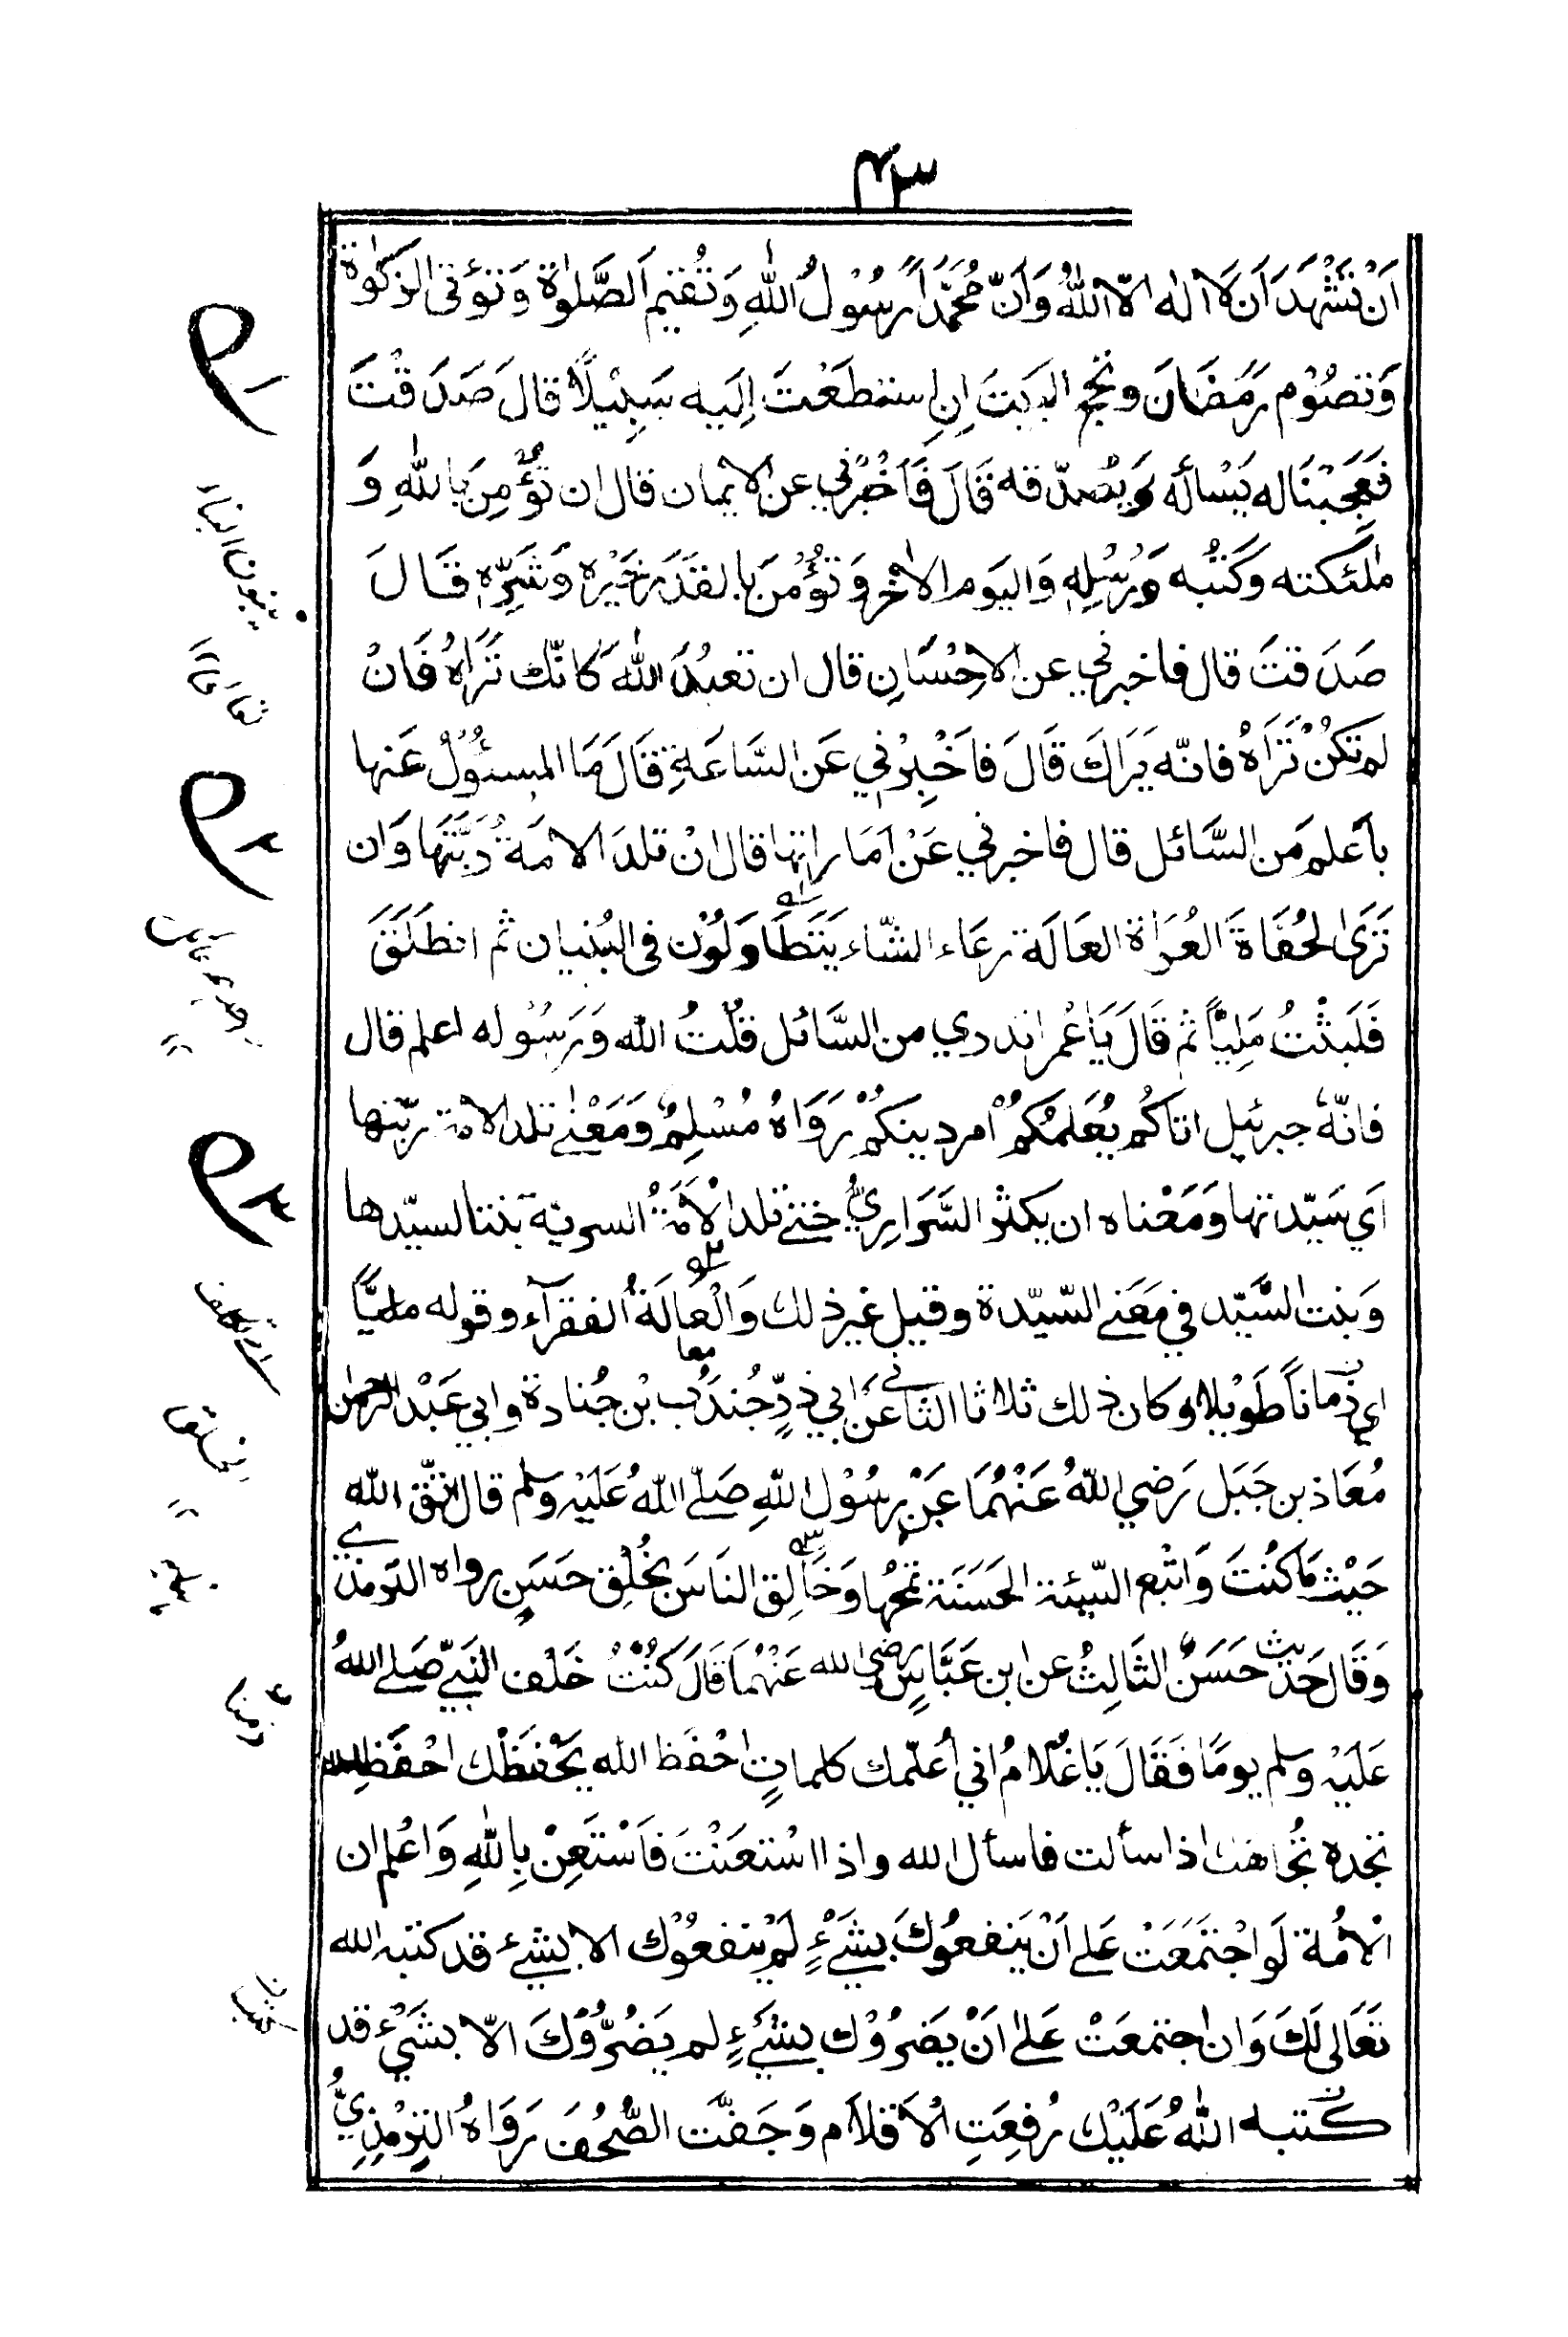 ٤٣
اَنْ تَشْهَدَ اَن لَا اله الّا اللهُ وَاَنَّ مُحَمَّدًا رسُوْلُ اللهِ وَتُقيم الصَّلوٰة وَتؤتى الزكوٰة
وَتصُوْم رمَضَانَ وتحج البيتَ اِنِ استطَعْتَ اِلَيه سَبِيْلًا قالَ صَدَقْتَ
فَعَجِبْنَا له يَسْأله وَيُصدّقه قَالَ فَاَخْبِرْني عن الايمان قال ان تؤْمِنَ باللهِ وَ
ملٰئكته وكَتُبه وَرُسُلِه وَاليَوم الاٰخر وَتؤُمنَ بالقدَر خَيْرِه وَشَرِّه قَالَ
صَدَقتَ قال فاخبرني عن الاحِسَانِ قال ان تعبُدَ اللهَ كانّك تَرَاهُ فَانْ
لم تكُنْ تَرَاهُ فانّه يَرَاكَ قَالَ فاَخْبِرْني عَن السَّاعَةِ قَالَ مَا المسئُوْلُ عَنها
باَعلم مَن السَّائل قال فاخبرني عَنْ اَمَاراتها قال انْ تلدَ الامَةُ رَبَّتَهَا وَان
تَرَى الحُفَاةَ العُرَاة العَالَة رعَاء الشّاء يَتَطَاوَلُوْن فى البُنيان ثم انطَلَقَ
فَلَبثْتُ مَلِيًّا ثم قَالَ يَا عُمر اتدري من السَّائل قلْتُ الله وَرَسُوله اعلم قال
فانّهُ جبرئيل اتاكُم يُعَلمُكمْ امر دينكُمْ رَوَاهُ مُسْلِمٌ وَمَعْنى تلد الامة ربّتها
اَي سَيّدتها وَمَعْناه ان يكثر السَّرَارِيُّ حتى تلد الْأَمَةُ السرية بنتا لسيّدها
وَبنت السَّيّد في مَعَنى السّيّدة وقيل غير ذلك وَالْعَالَةُ الفقرآء وقوله مليًّا
اي زمَاناً طَوْيلا وكان ذلك ثلاثا الثاني عَن اَبي ذرٍّ جُندُب بْن جُنادة وابي عَبْد الرحمٰن
مُعَاذ بن جَبَل رَضي اللهُ عَنْهُمَا عَنْ رسُوْل اللهِ صَلّى اللهُ عَلَيْه وسلم قال اتّق الله
حَيْث مَا كنُتَ وَاتْبع السّيئة الحَسَنَة تمحُها وَخَالِق النَاسَ بخُلِق حَسَنٍ رواه الترمذي
وَقَال حَديث حَسَنٌ الثَالِثُ عن ابن عَبَّاسٍ رضي الله عَنْهُمَا قَالَ كنْتُ خَلْف النَبيّ صَلى اللهُ
عَلَيْه وسلم يومًا فَقَالَ يَا غُلَامُ اني اُعلّمك كلماتٍ احْفَظ الله يَحْفَظْك احْفَظِ الله
تجده تجُاهَك اذا سألت فاسأل الله واذا اسْتعَنْتَ فَاسْتَعِنْ بِاللهِ وَاعْلم ان
الْامُة لَو اجْتَمَعَتْ عَلى اَنْ يَنفعُوْكَ بشَيْءٍ لَمْ يَنفعُوْك الا بشيء قد كتبه الله
تَعَالى لَكَ وَان اجتمعَتْ عَلىٰ اَنْ يَضرُوْك بشَيْءٍ لم يَضُرُّوْكَ الّا بشَيْء قد
كَتبه اللهُ عَلَيْك رُفِعَتِ الْأقلاَم وَجَفّت الصُّحُفَ رَوَاهُ التِرْمذِيُّ